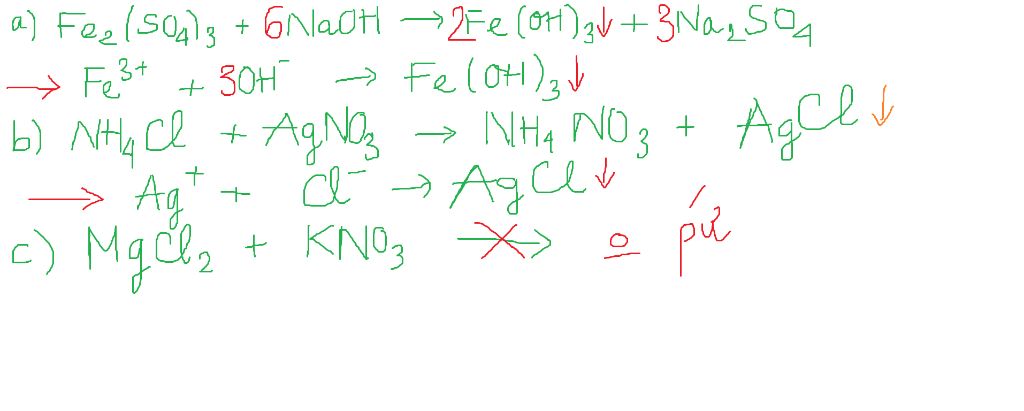 a) Fe₂(SO₄)₃ + 6NaOH → 2Fe(OH)₃↓ + 3Na₂SO₄
→ Fe³⁺ + 3OH⁻ → Fe(OH)₃↓
b) NH₄Cl + AgNO₃ → NH₄NO₃ + AgCl↓
→ Ag⁺ + Cl⁻ → AgCl↓
c) MgCl₂ + KNO₃ ↛ o